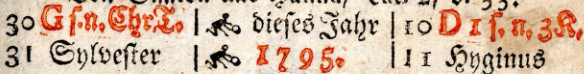 30 G ſ. n. Chr. T. | dieſes Jahr | 10 D 1 ſ. n. 3 K.
31 Sylveſter | 1795. | 11 Hyginus